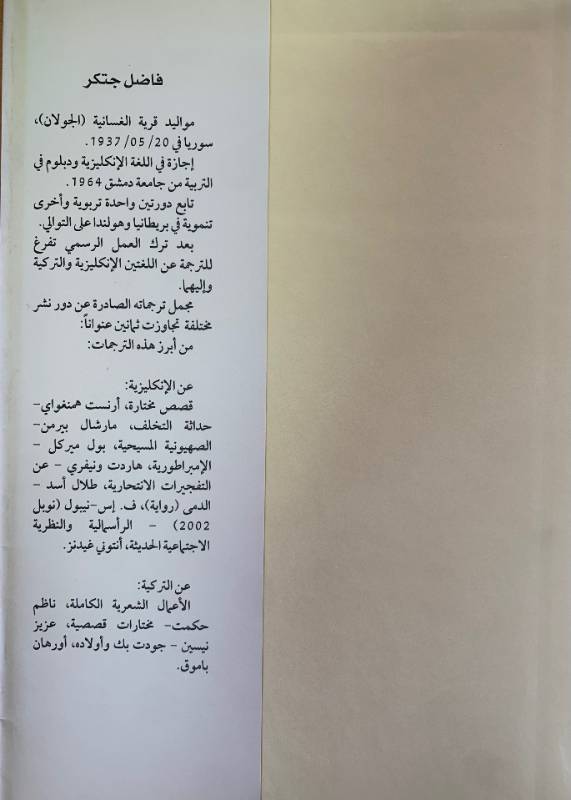 فاضل جتكر
مواليد قرية الغسانية (الجولان)،
سوريا في 20/ 05/ 1937.
إجازة في اللغة الإنكليزية ودبلوم في
التربية من جامعة دمشق 1964.
تابع دورتين واحدة تربوية وأخرى
تنموية في بريطانيا وهولندا على التوالي.
بعد ترك العمل الرسمي تفرغ
للترجمة عن اللغتين الإنكليزية والتركية
وإليهما.
مجمل ترجماته الصادرة عن دور نشر
مختلفة تجاوزت ثمانين عنواناً:
من أبرز هذه الترجمات:
عن الإنكليزية:
قصص مختارة، أرنست همنغواي–
حداثة التخلف، مارشال بيرمن–
الصهيونية المسيحية، بول ميركل –
الإمبراطورية، هاردت ونيفري – عن
التفجيرات الانتحارية، طلال أسد –
الدمى (رواية)، ف. إس–نيبول (نوبل
2002) – الرأسمالية والنظرية
الاجتماعية الحديثة، أنتوني غيدنز.
عن التركية:
الأعمال الشعرية الكاملة، ناظم
حكمت– مختارات قصصية، عزيز
نيسين – جودت بك وأولاده، أورهان
باموق.